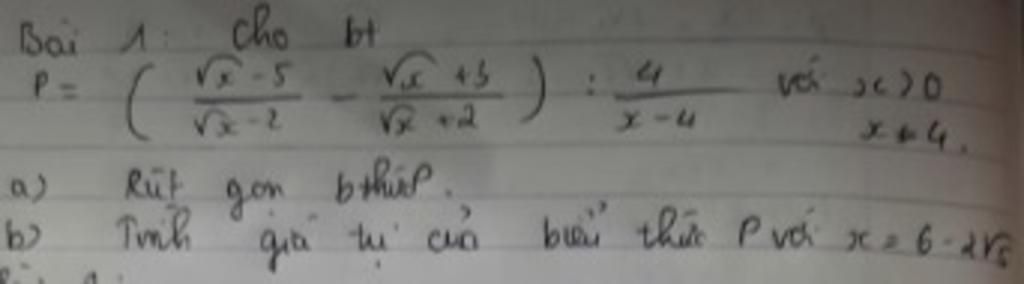 Bài 1: Cho bt
P = ( (√x - 5)/(√x - 2) - (√x + 3)/(√x + 2) ) : 4/(x - 4) với x > 0 x ≠ 4.
a) Rút gọn bthức P.
b) Tính giá trị của biểu thức P với x = 6 - 2√5